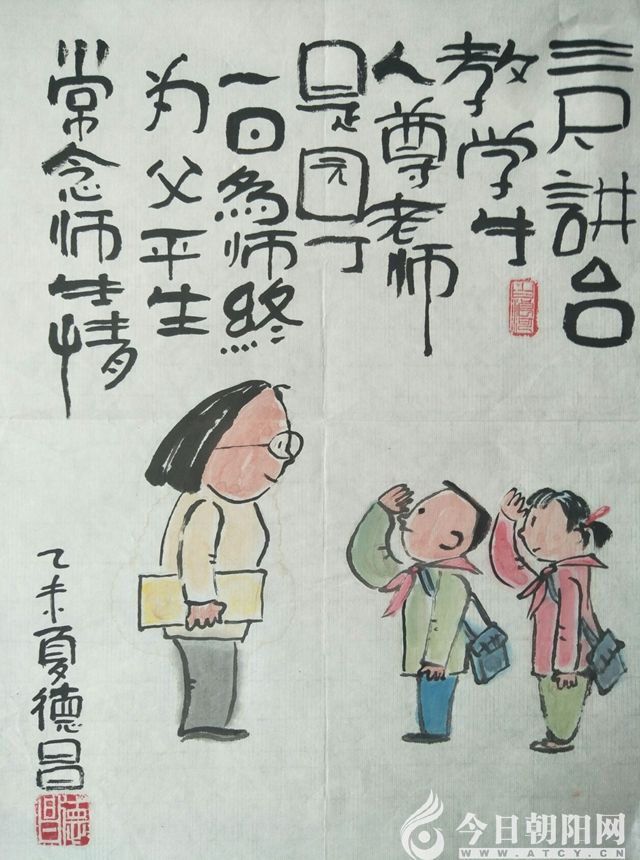 三尺讲台
教学生
人尊老师
是园丁
一日為师終
为父平生
常念师生情
乙未夏德昌
德昌
今日朝阳网
WWW.ATCY.CN